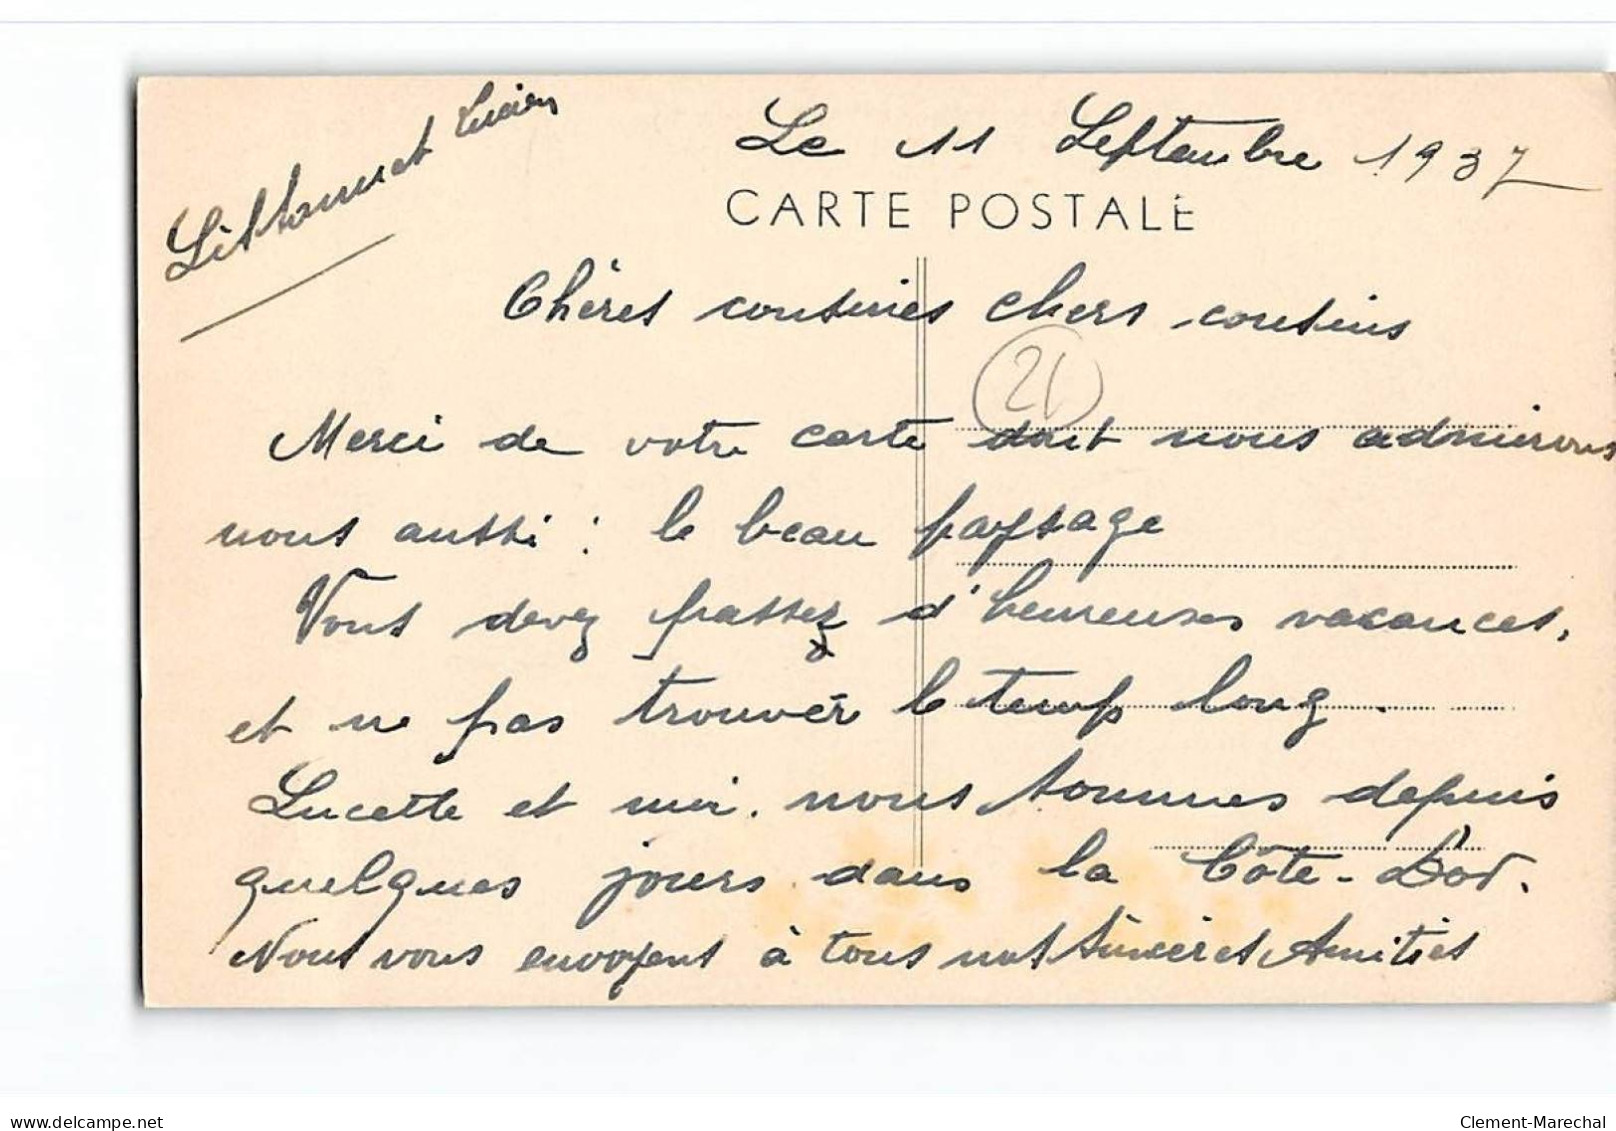 Lucien
Le 11 Septembre 1937
CARTE POSTALE
Chères cousines chers cousins
21
Merci de votre carte dont nous admirons
nous aussi : le beau paysage
Vous devez passez d'heureuses vacances,
et ne pas trouvér le temps long.
Lucette et moi. nous sommes depuis
quelques jours dans la Côte-D'or.
Nous vous envoyens à tous nos sincères Amitiés
www.delcampe.net
Clement-Marechal